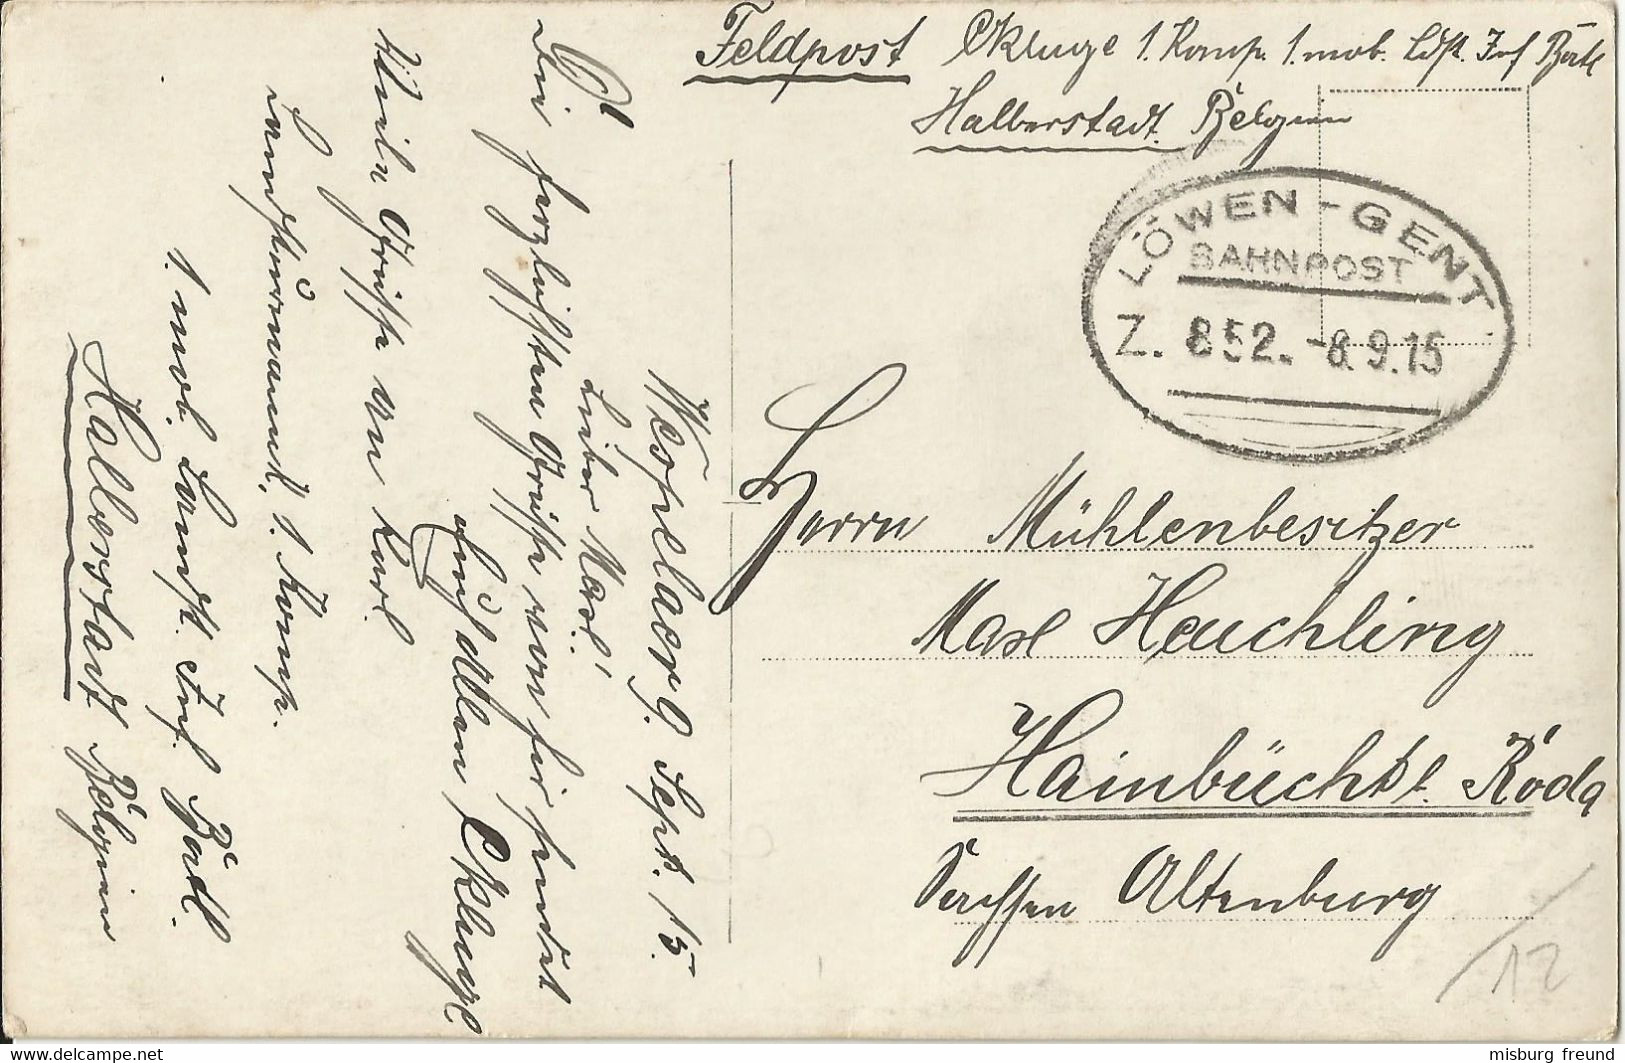 Feldpost Okluge 1. Komp. 1. mob. Ldst. Inf Batl
Halberstadt. Belgien
LÖWEN - GENT
BAHNPOST
Z. 852. - 8.9.15
Herrn Mühlenbesitzer
Max Heuchling
Hainbücht b. Roda
Sachsen Altenburg
Wespelaer 9. Sept. 15.
Lieber Max!
Die herzlichsten Grüsse von hier sendet
Dir Okluge
Auch allen
Viele Grüsse von Karl
Landsturmmann 1. Komp.
1. mob. Landst. Inf. Batl.
Halberstadt Belgien
12
www.delcampe.net
misburg freund